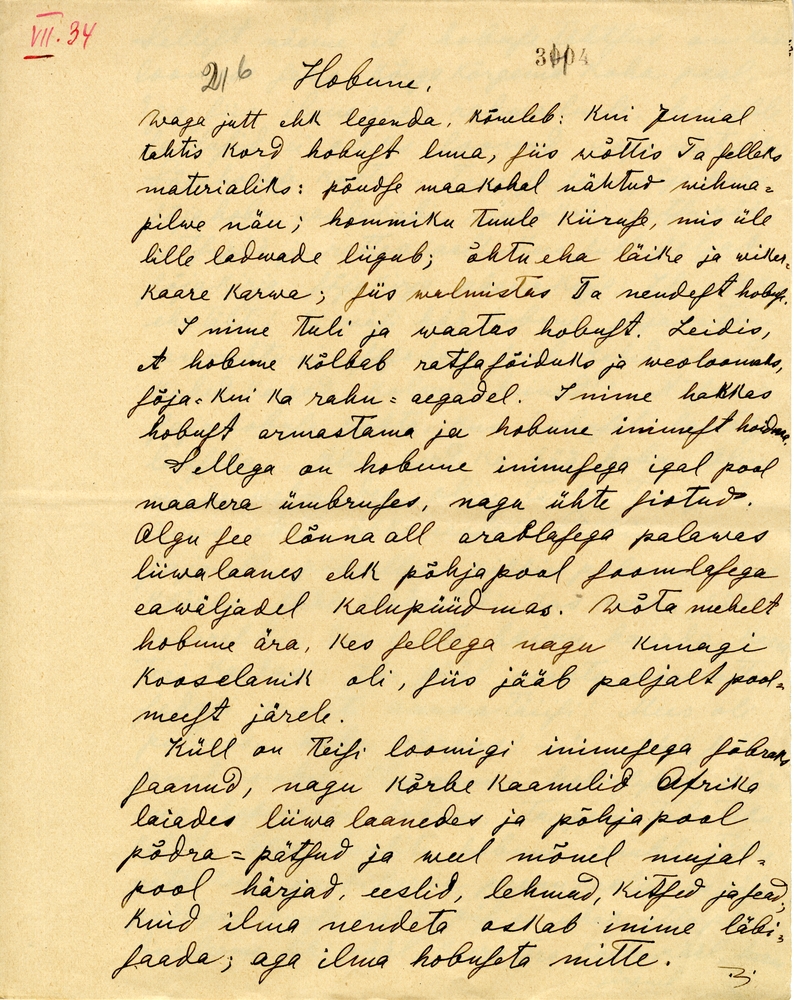 VII. 34
216
3004
Hobune.
Waga jutt ehk legenda, kõneleb: Kui Jumal
tahtis kord hobuſt luua, ſiis wõttis Ta ſelleks
materialiks: põudſe maakohal nähtud wihma=
pilwe näu; hommiku tuule kiiruſe, mis üle
lille ladwade liigub; õhtu eha läike ja wiker=
kaare karwa; ſiis walmistas Ta nendeſt hobuſe.
Inime tuli ja waatas hobuſt. Leidis,
et hobune kõlbab ratſaſõiduks ja weoloomaks,
ſõja= kui ka rahu= aegadel. Inime hakkas
hobuſt armastama ja hobune inimeſt hoidma.
Sellega on hobune inimeſega igal pool
maakera ümbruſes, nagu ühte ſiotud.
Olgu ſee lõuna all arablaſega palawas
liiwalaanes ehk põhjapool ſoomlaſega
eawäljadel kalupüüdmas. Wõta mehelt
hobune ära, kes ſellega nagu kunagi
kooselanik oli, ſiis jääb paljalt pool=
meeſt järele.
Küll on teiſi loomigi inimeſega ſõbraks
ſaanud, nagu kõrbe kaamelid Afrika
laiades liiwa laanedes ja põhjapool
põdra= pätſud ja weel mõnel mujal=
pool härjad, eeslid, lehmad, kitſed ja ſead;
kuid ilma nendeta oskab inime läbi=
ſaada; aga ilma hobuſeta mitte.